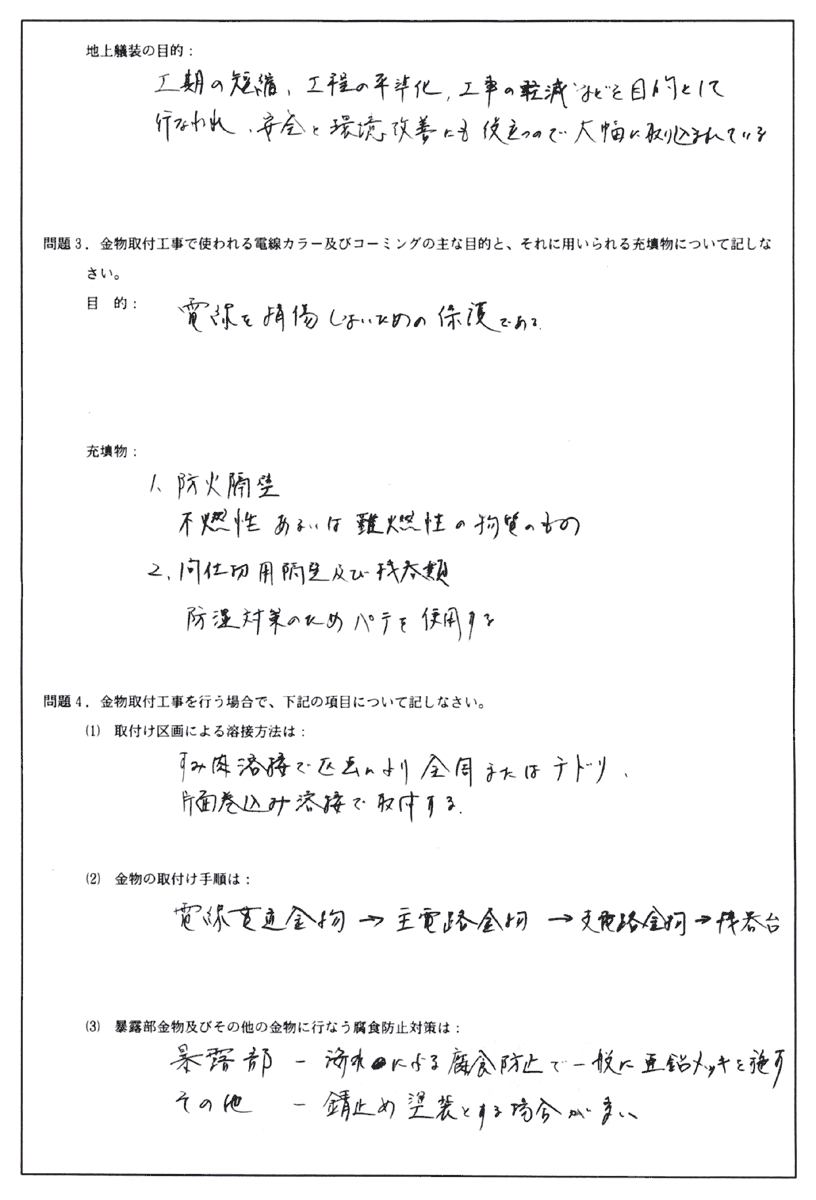 地上艤装の目的：
工期の短縮、工程の平準化、工事の軽減などを目的として
行なわれ、安全と環境改善にも役立つので大幅に取り込まれている
問題３．金物取付工事で使われる電線カラー及びコーミングの主な目的と、それに用いられる充填物について記しな
さい。
目　的：
電線を損傷しないための保護である。
充填物：
1. 防火隔壁
不燃性あるいは難燃性の物質のもの
2. 間仕切用隔壁及び機器類
防湿対策のためパテを使用する
問題４．金物取付工事を行う場合で、下記の項目について記しなさい。
⑴　取付け区画による溶接方法は：
すみ肉溶接で区画により全周またはチドリ、
片面巻込み溶接で取付する。
⑵　金物の取付け手順は：
電線貫通金物 → 主電路金物 → 支電路金物 → 機器台
⑶　暴露部金物及びその他の金物に行なう腐食防止対策は：
暴露部 － 海水による腐食防止で一般に亜鉛メッキを施す
その他 － 錆止め塗装とする場合が多い